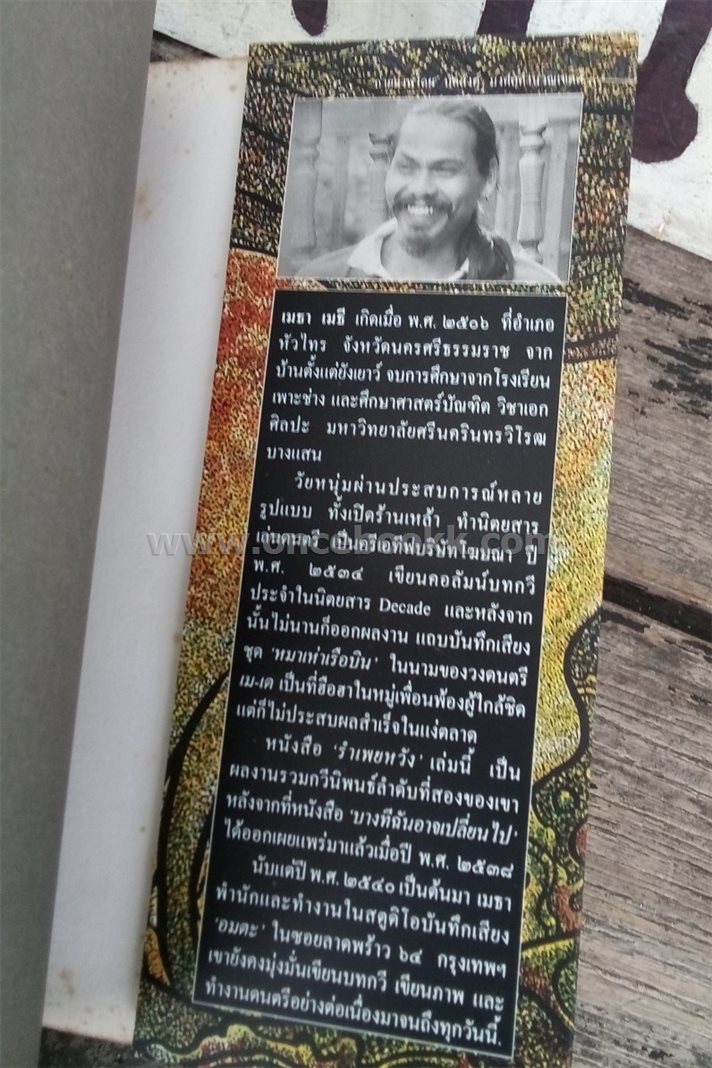 เมธา เมธี เกิดเมื่อ พ.ศ. ๒๕๐๖ ที่อำเภอ
หัวไทร จังหวัดนครศรีธรรมราช จาก
บ้านตั้งแต่ยังเยาว์ จบการศึกษาจากโรงเรียน
เพาะช่าง และศึกษาศาสตร์บัณฑิต วิชาเอก
ศิลปะ มหาวิทยาลัยศรีนครินทรวิโรฒ
บางแสน
วัยหนุ่มผ่านประสบการณ์หลาย
รูปแบบ ทั้งเปิดร้านเหล้า ทำนิตยสาร
เล่นดนตรี เป็นครีเอทีฟบริษัทโฆษณา ปี
พ.ศ. ๒๕๓๔ เขียนคอลัมน์บทกวี
ประจำในนิตยสาร Decade และหลังจาก
นั้นไม่นานก็ออกผลงาน แถบบันทึกเสียง
ชุด 'หมาเห่าเรือบิน' ในนามของวงดนตรี
เม-เด เป็นที่ฮือฮาในหมู่เพื่อนพ้องผู้ใกล้ชิด
แต่ก็ไม่ประสบผลสำเร็จในแง่ตลาด
หนังสือ 'รำเพยหวัง' เล่มนี้ เป็น
ผลงานรวมกวีนิพนธ์ลำดับที่สองของเขา
หลังจากที่หนังสือ 'บางทีฉันอาจเปลี่ยนไป'
ได้ออกเผยแพร่มาแล้วเมื่อปี พ.ศ. ๒๕๓๘
นับแต่ปี พ.ศ. ๒๕๔๐ เป็นต้นมา เมธา
พำนักและทำงานในสตูดิโอบันทึกเสียง
'อมตะ' ในซอยลาดพร้าว ๖๔ กรุงเทพฯ
เขายังคงมุ่งมั่นเขียนบทกวี เขียนภาพ และ
ทำงานดนตรีอย่างต่อเนื่องมาจนถึงทุกวันนี้.
www.oncebookk.com